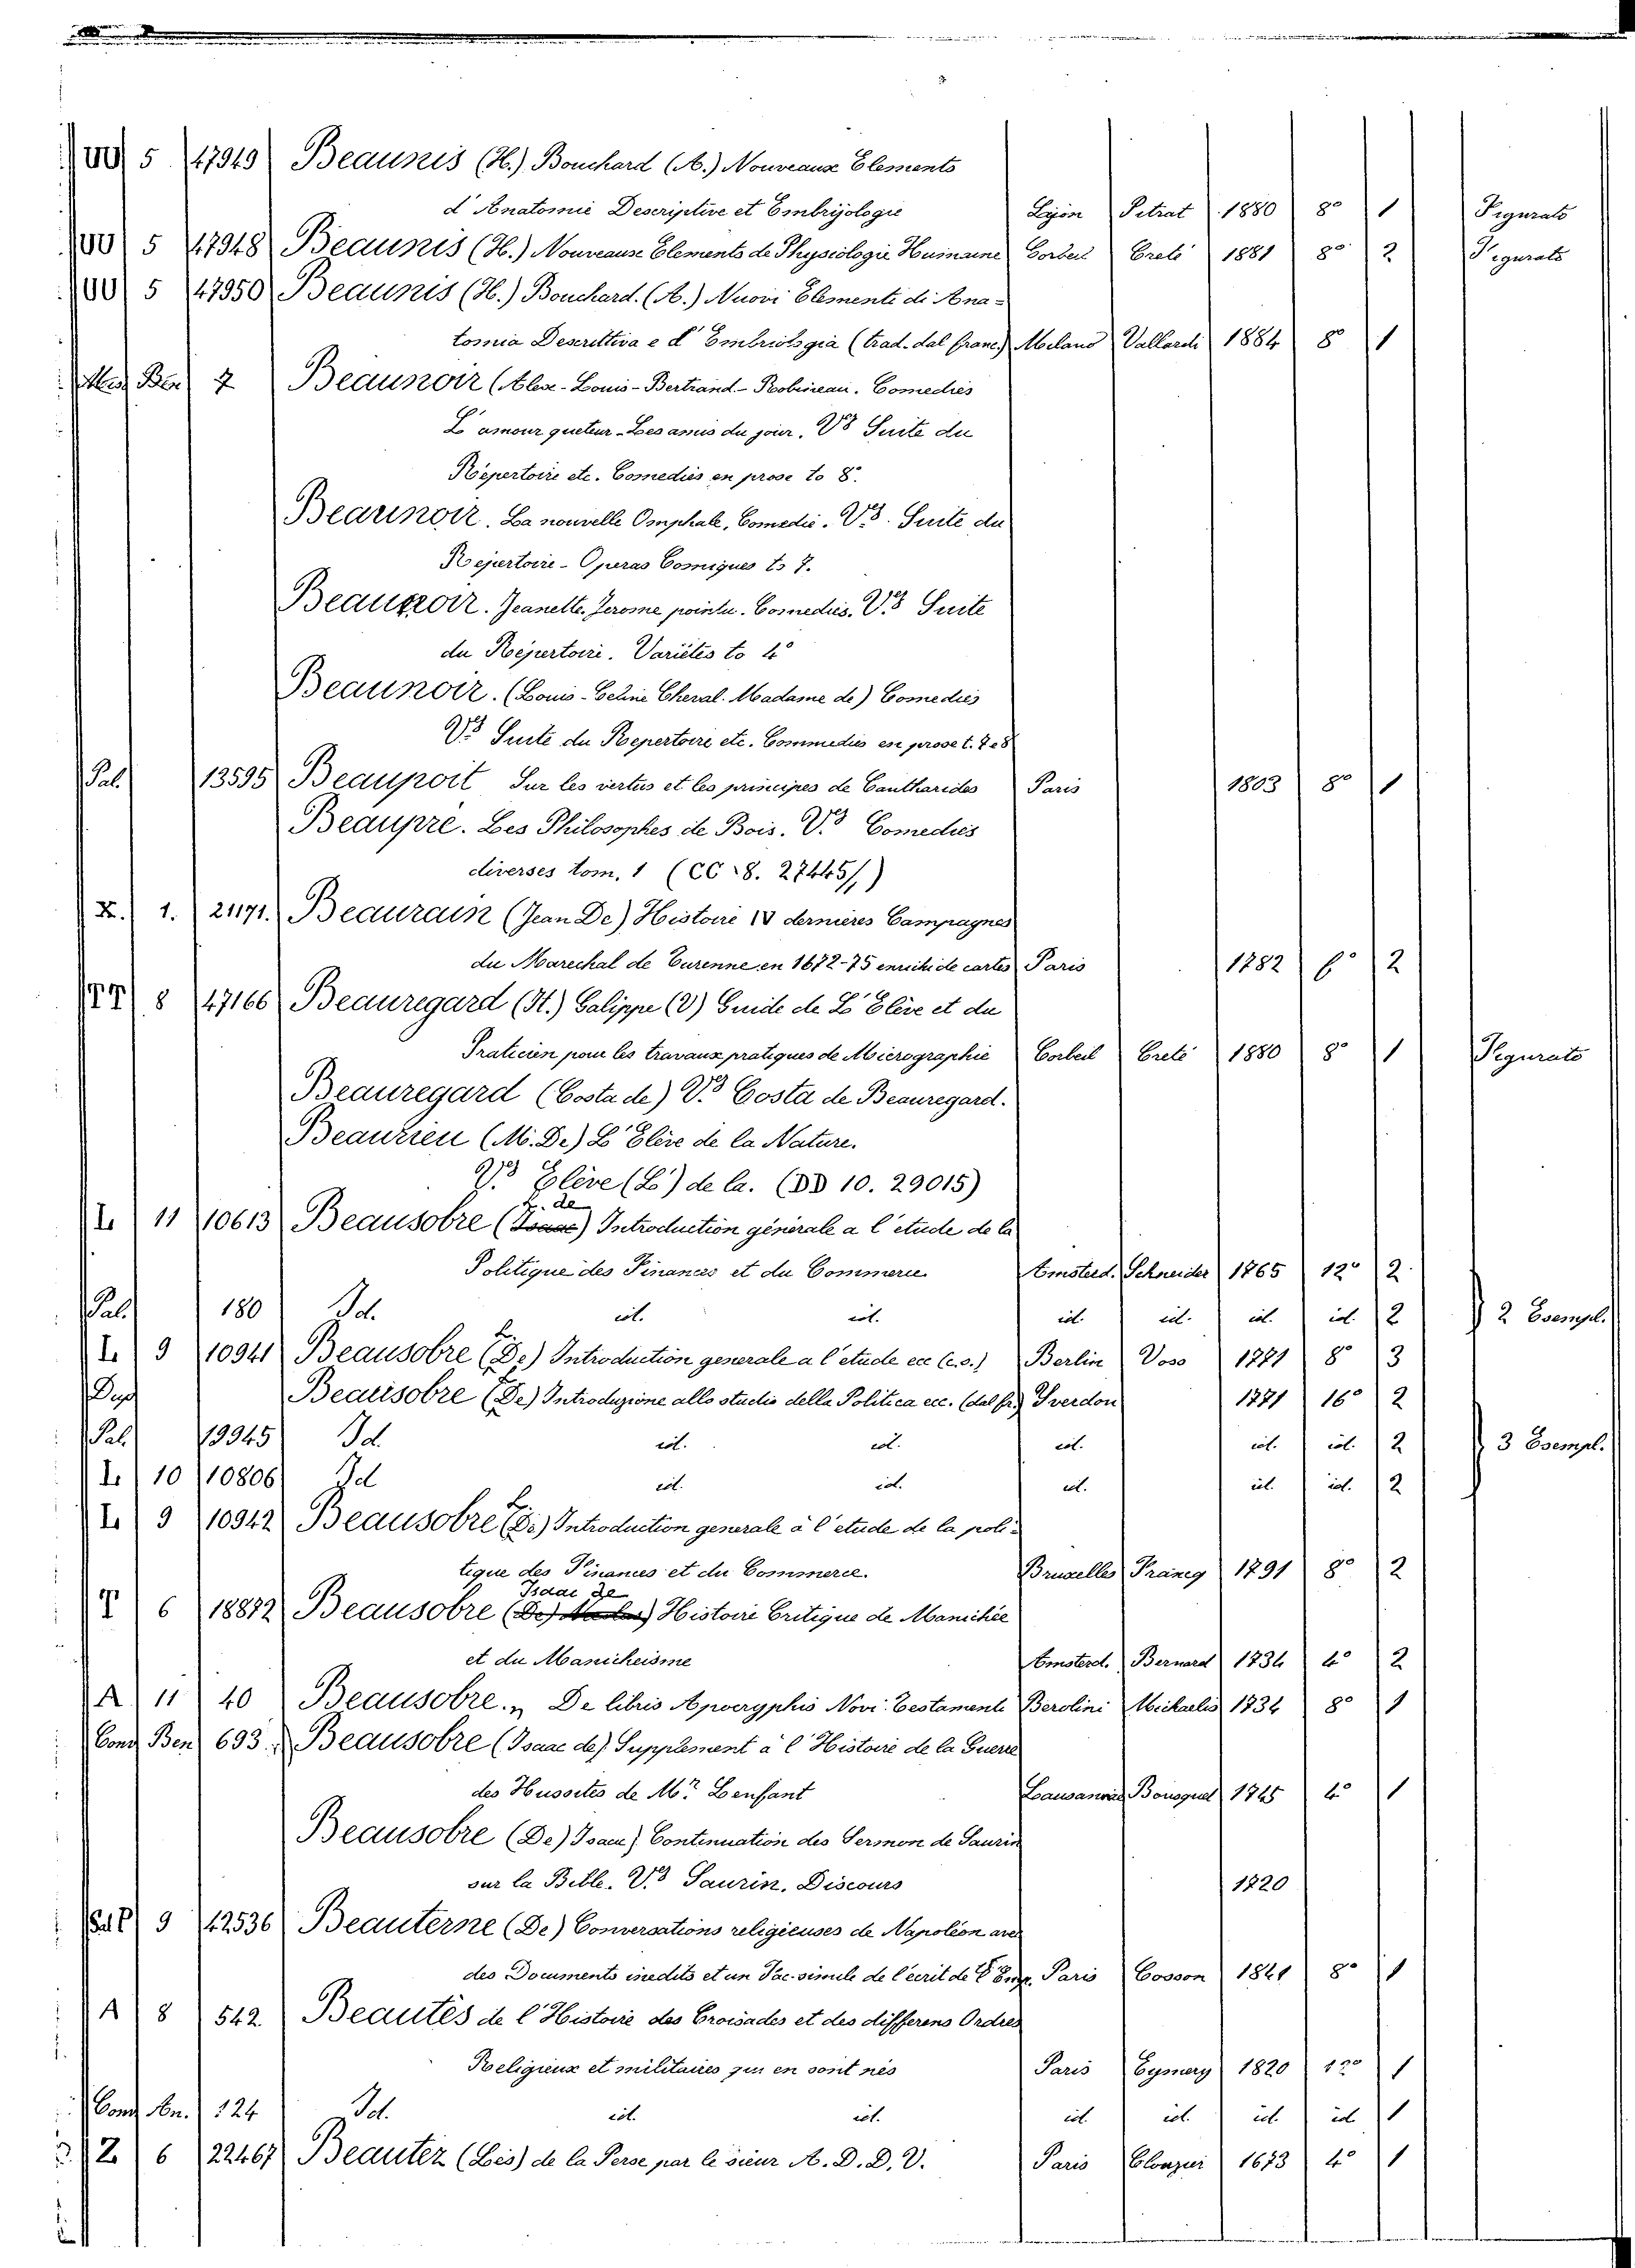 VV 5 47949 Beaunis (H.) Bouchard (A.) Nouveaux Elements
d'Anatomie Descriptive et Embrijologie Lyon Pitrat 1880 8° 1 Figurato
VV 5 47948 Beaunis (H.) Nouveaux Elements de Physiologie Humaine Corbeil Creté 1881 8° 2 Figurato
VV 5 47950 Beaunis (H.) Bouchard. (A.) Nuovi Elementi di Ana-
tomia Descrittiva e d'Embriologia (trad. dal franc.) Milano Vallardi 1884 8° 1
Ben 7 Beaunoir (Alex-Louis-Bertrand-Robineau. Comedies
L'amour queteur-Les amis du jour. V.s Suite du
Répertoire etc. Comedies en prose to 8.°
Beaunoir. La nouvelle Omphale, Comedie. V.s Suite du
Repertoire-Operas Comiques to 7.
Beaunoir. Jeanette. Jerome pointu. Comedies. V.s Suite
du Répertoire. Variétés to 4°
Beaunoir. (Louis-Celine Cheval. Madame de) Comedies
V.s Suite du Repertoire etc. Commedies en prose t. 7 e 8
Pal. 13595 Beaupoil Sur les vertus et les principes de Cantharides Paris 1803 8° 1
Beaupré. Les Philosophes de Bois. V.s Comedies
diverses tom. 1 (CC 8. 27445/1)
X. 1. 21171. Beaurain (Jean De) Histoire IV dernieres Campagnes
du Marechal de Turenne en 1672-75 enrichi de cartes Paris 1782 f° 2
TT 8 47166 Beauregard (H.) Galippe (V) Guide de L'Elève et du
Praticien pour les travaux pratiques de Micrographie Corbeil Creté 1880 8° 1 Figurato
Beauregard (Costa de) V.s Costa de Beauregard.
Beaurieu (M. De) L'Elève de la Nature.
V.s Elève (L') de la. (DD 10. 29015)
L. de
L 11 10613 Beausobre (Isaac) Introduction générale a l'etude de la
Politique des Finances et du Commerce Amsterd. Schneider 1765 12° 2
Pal. 180 Id. id. id. id. id. id. id. 2 2 Esempl.
L.
L 9 10941 Beausobre (De) Introduction generale a l'etude ecc (c.s.) Berlin Voss 1771 8° 3
Dup Beausobre (De) Introduzione allo studio della Politica ecc. (dal fr.) Yverdon 1771 16° 2
Pal. 19945 Id. id. id. id. id. id. 2 3 Esempl.
L 10 10806 Id id. id. id. id. id. 2
L.
L 9 10942 Beausobre (De) Introduction generale à l'etude de la poli-
tique des Finances et du Commerce. Bruxelles 1791 8° 2
Isaac de
T 6 18872 Beausobre (De) Histoire Critique de Manichée
et du Manicheisme Amsterd. Bernard 1734 4° 2
A 11 40 Beausobre. „ De libris Apocryphis Novi Testamenti Berolini Michaelis 1734 8° 1
Cons Ben 693. Beausobre (Isaac de) Supplement à l'Histoire de la Guerre
des Hussites de M.r Lenfant Bousquet 1745 4° 1
Beausobre (De) Isaac) Continuation des Sermon de Saurin
sur la Bible. V.s Saurin. Discours 1720
9 42536 Beauterne (De) Conversations religieuses de Napoléon avec
des Documents inedits et un Fac-simile de l'ecrit de l'Emp. Paris Cosson 1841 8° 1
A 8 542. Beautés de l'Histoire des Croisades et des differens Ordres
Religieux et militaires qui en sont nés Paris Eymery 1820 12° 1
Cons An. 124 Id. id. id. id. id. id. id. 1
Z 6 22467 Beautez (Les) de la Perse par le sieur A. D. D. V. Paris 1673 4° 1